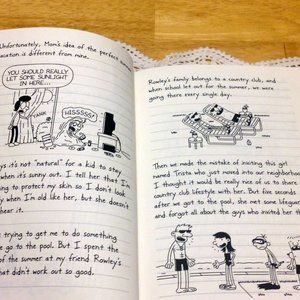 Unfortunately, Mom's idea of the perfect summer
vacation is different from mine.
YOU SHOULD REALLY
LET SOME SUNLIGHT
IN HERE...
YANK
HISSSSS!
says it's not "natural" for a kid to stay
when it's sunny out. I tell her that I'm
trying to protect my skin so I don't look
y when I'm old like her, but she doesn't
hear it.
trying to get me to do something
go to the pool. But I spent the
of the summer at my friend Rowley's
that didn't work out so good.
Rowley's family belongs to a country club, and
when school let out for the summer, we were
going there every single day.
Then we made the mistake of inviting this girl
named Trista who just moved into our neighborhood.
I thought it would be really nice of us to share
country club lifestyle with her. But five seconds
after we got to the pool, she met some lifeguard
and forgot all about the guys who invited her